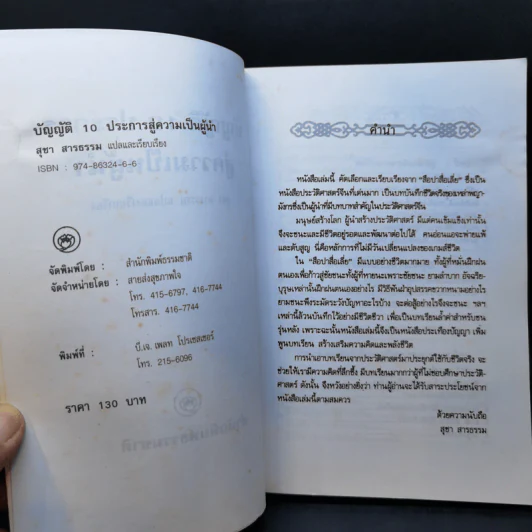 บัญญัติ 10 ประการสู่ความเป็นผู้นำ
สุชา สารธรรม แปลและเรียบเรียง
ISBN : 974-86324-6-6
จัดพิมพ์โดย : สำนักพิมพ์ธรรมชาติ
จัดจำหน่ายโดย : สายส่งสุขภาพใจ
โทร. 415-6797, 416-7744
โทรสาร. 416-7744
พิมพ์ที่ : บี.เจ. เพลท โปรเซสเซอร์
โทร. 215-6096
ราคา 130 บาท
คำนำ
หนังสือเล่มนี้ คัดเลือกและเรียบเรียงจาก "สือปาสื่อเลี่ย" ซึ่งเป็น
หนังสือประวัติศาสตร์จีนที่เด่นมาก เป็นบทบันทึกชีวิตจริงของเหล่าพญา-
มังกรซึ่งเป็นผู้นำที่มีบทบาทสำคัญในประวัติศาสตร์จีน
มนุษย์สร้างโลก ผู้นำสร้างประวัติศาสตร์ มีแต่คนเข้มแข็งเท่านั้น
จึงจะชนะและมีชีวิตอยู่รอดและพัฒนาต่อไปได้ คนอ่อนแอจะพ่ายแพ้
และดับสูญ นี่คือหลักการที่ไม่มีวันเปลี่ยนแปลงของเกมส์ชีวิต
ใน "สือปาสื่อเลี่ย" มีแบบอย่างชีวิตมากมาย ทั้งผู้ที่หมั่นฝึกฝน
ตนเองเพื่อก้าวสู่ชัยชนะทั้งผู้ที่หายนะเพราะชัยชนะ ยามลำบาก อัจฉริย-
บุรุษเหล่านั้นฝึกฝนตนเองอย่างไร มีวิธีฟันฝ่าอุปสรรคขวากหนามอย่างไร
ยามชนะพึงระมัดระวังปัญหาอะไรบ้าง จะต่อสู้อย่างไรจึงจะชนะ ฯลฯ
เหล่านี้ล้วนบันทึกไว้อย่างมีชีวิตชีวา เพื่อเป็นบทเรียนล้ำค่าสำหรับชน
รุ่นหลัง เพราะฉะนั้นหนังสือเล่มนี้จึงเป็นหนังสือประเทืองปัญญา เพิ่ม
พูนบทเรียน สร้างเสริมความคิดและพลังชีวิต
การนำเอาบทเรียนจากประวัติศาสตร์มาประยุกต์ใช้กับชีวิตจริง จะ
ช่วยให้เรามีความคิดที่ลึกซึ้ง มีบทเรียนมากกว่าผู้ที่ไม่ชอบศึกษาประวัติ-
ศาสตร์ ดังนั้น จึงหวังอย่างยิ่งว่า ท่านผู้อ่านจะได้รับสาระประโยชน์จาก
หนังสือเล่มนี้ตามสมควร
ด้วยความนับถือ
สุชา สารธรรม